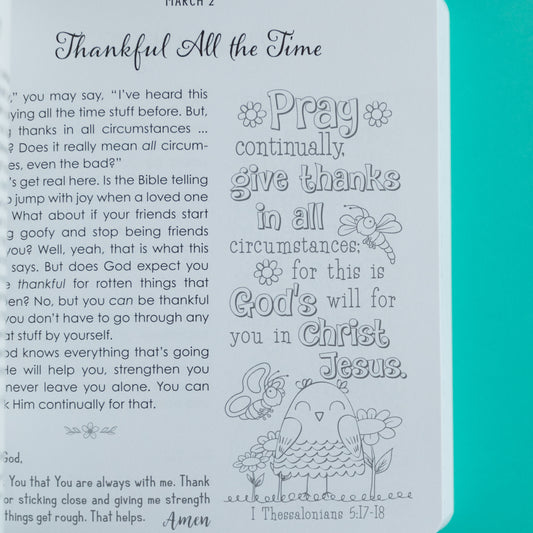 MARCH 2
Thankful All the Time
," you may say, "I've heard this
ying all the time stuff before. But,
g thanks in all circumstances ...
? Does it really mean all circum-
es, even the bad?"
's get real here. Is the Bible telling
o jump with joy when a loved one
What about if your friends start
g goofy and stop being friends
you? Well, yeah, that is what this
says. But does God expect you
e thankful for rotten things that
en? No, but you can be thankful
you don't have to go through any
at stuff by yourself.
od knows everything that's going
He will help you, strengthen you
never leave you alone. You can
k Him continually for that.
God,
You that You are always with me. Thank
or sticking close and giving me strength
things get rough. That helps. Amen
Pray
continually,
give thanks
in all
circumstances;
for this is
God's will for
you in Christ
Jesus.
1 Thessalonians 5:17-18